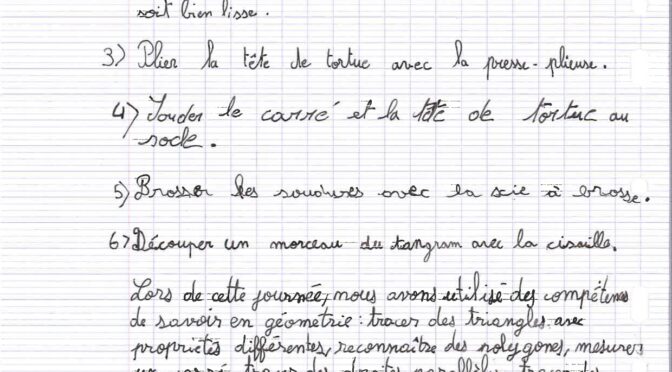 soit bien lisse.
3) Plier la tête de tortue avec la presse-plieuse.
4) Souder le carré et la tête de tortue au
socle.
5) Brosser les soudures avec la scie à brosse.
6) Découper un morceau du tangram avec la cisaille.
Lors de cette journée, nous avons utilisé des compétences
de savoir en géométrie : tracer des triangles avec
propriétés différentes, reconnaître des polygones, mesurer
un carré, tracer des droites parallèles